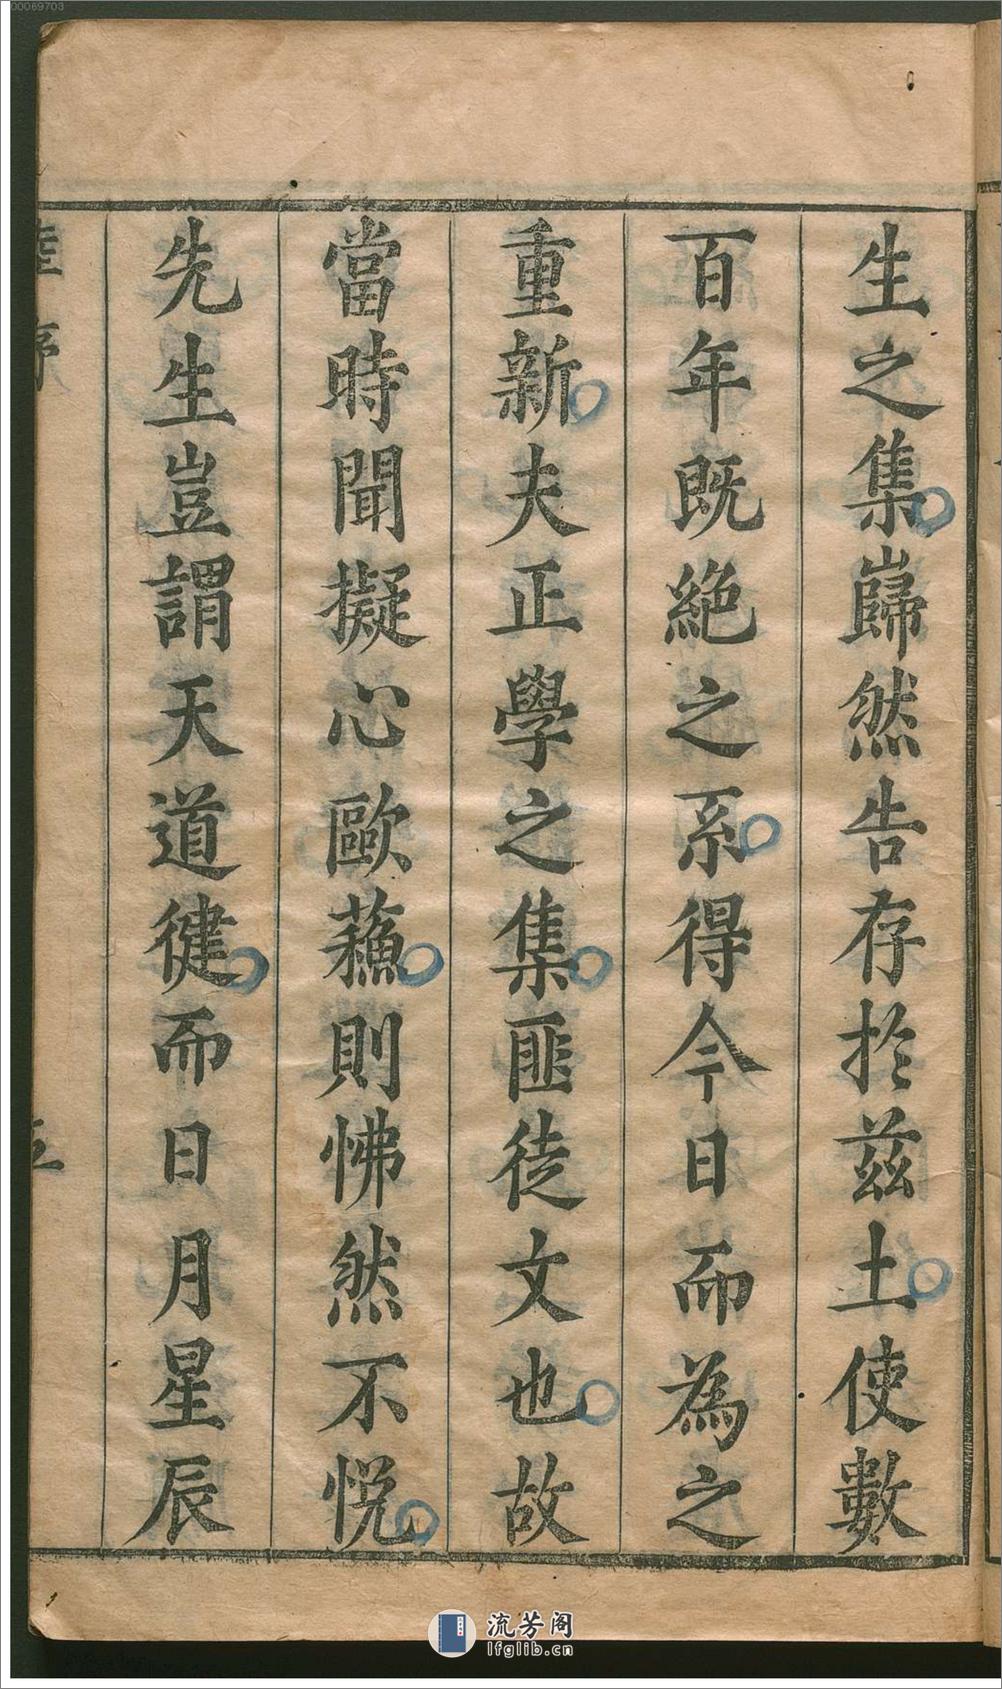 生之集巋然告存於茲土使數
百年既絕之系得今日而為之
重新夫正學之集匪徒文也故
當時聞擬心歐蘓則怫然不悅
先生豈謂天道健而日月星辰
序
五
00069703
流芳阁
lfglib.cn